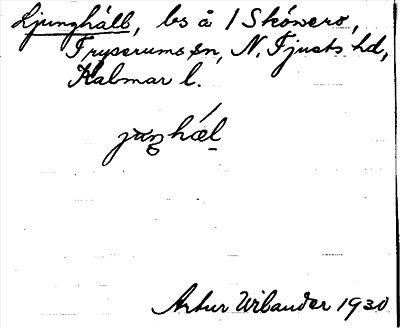 Ljunghäll, bs å 1 Skönero,
Tryserums sn, N. Tjusts hd,
Kalmar l.
Artur Wilander 1930